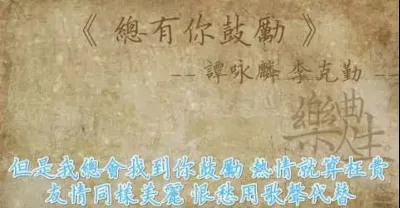 《 總有你鼓勵 》
-- 譚咏麟 李克勤 --
樂曲人生
但是我總會找到你鼓勵 熱情就算枉費
友情同樣美麗 恨愁用歌聲代替